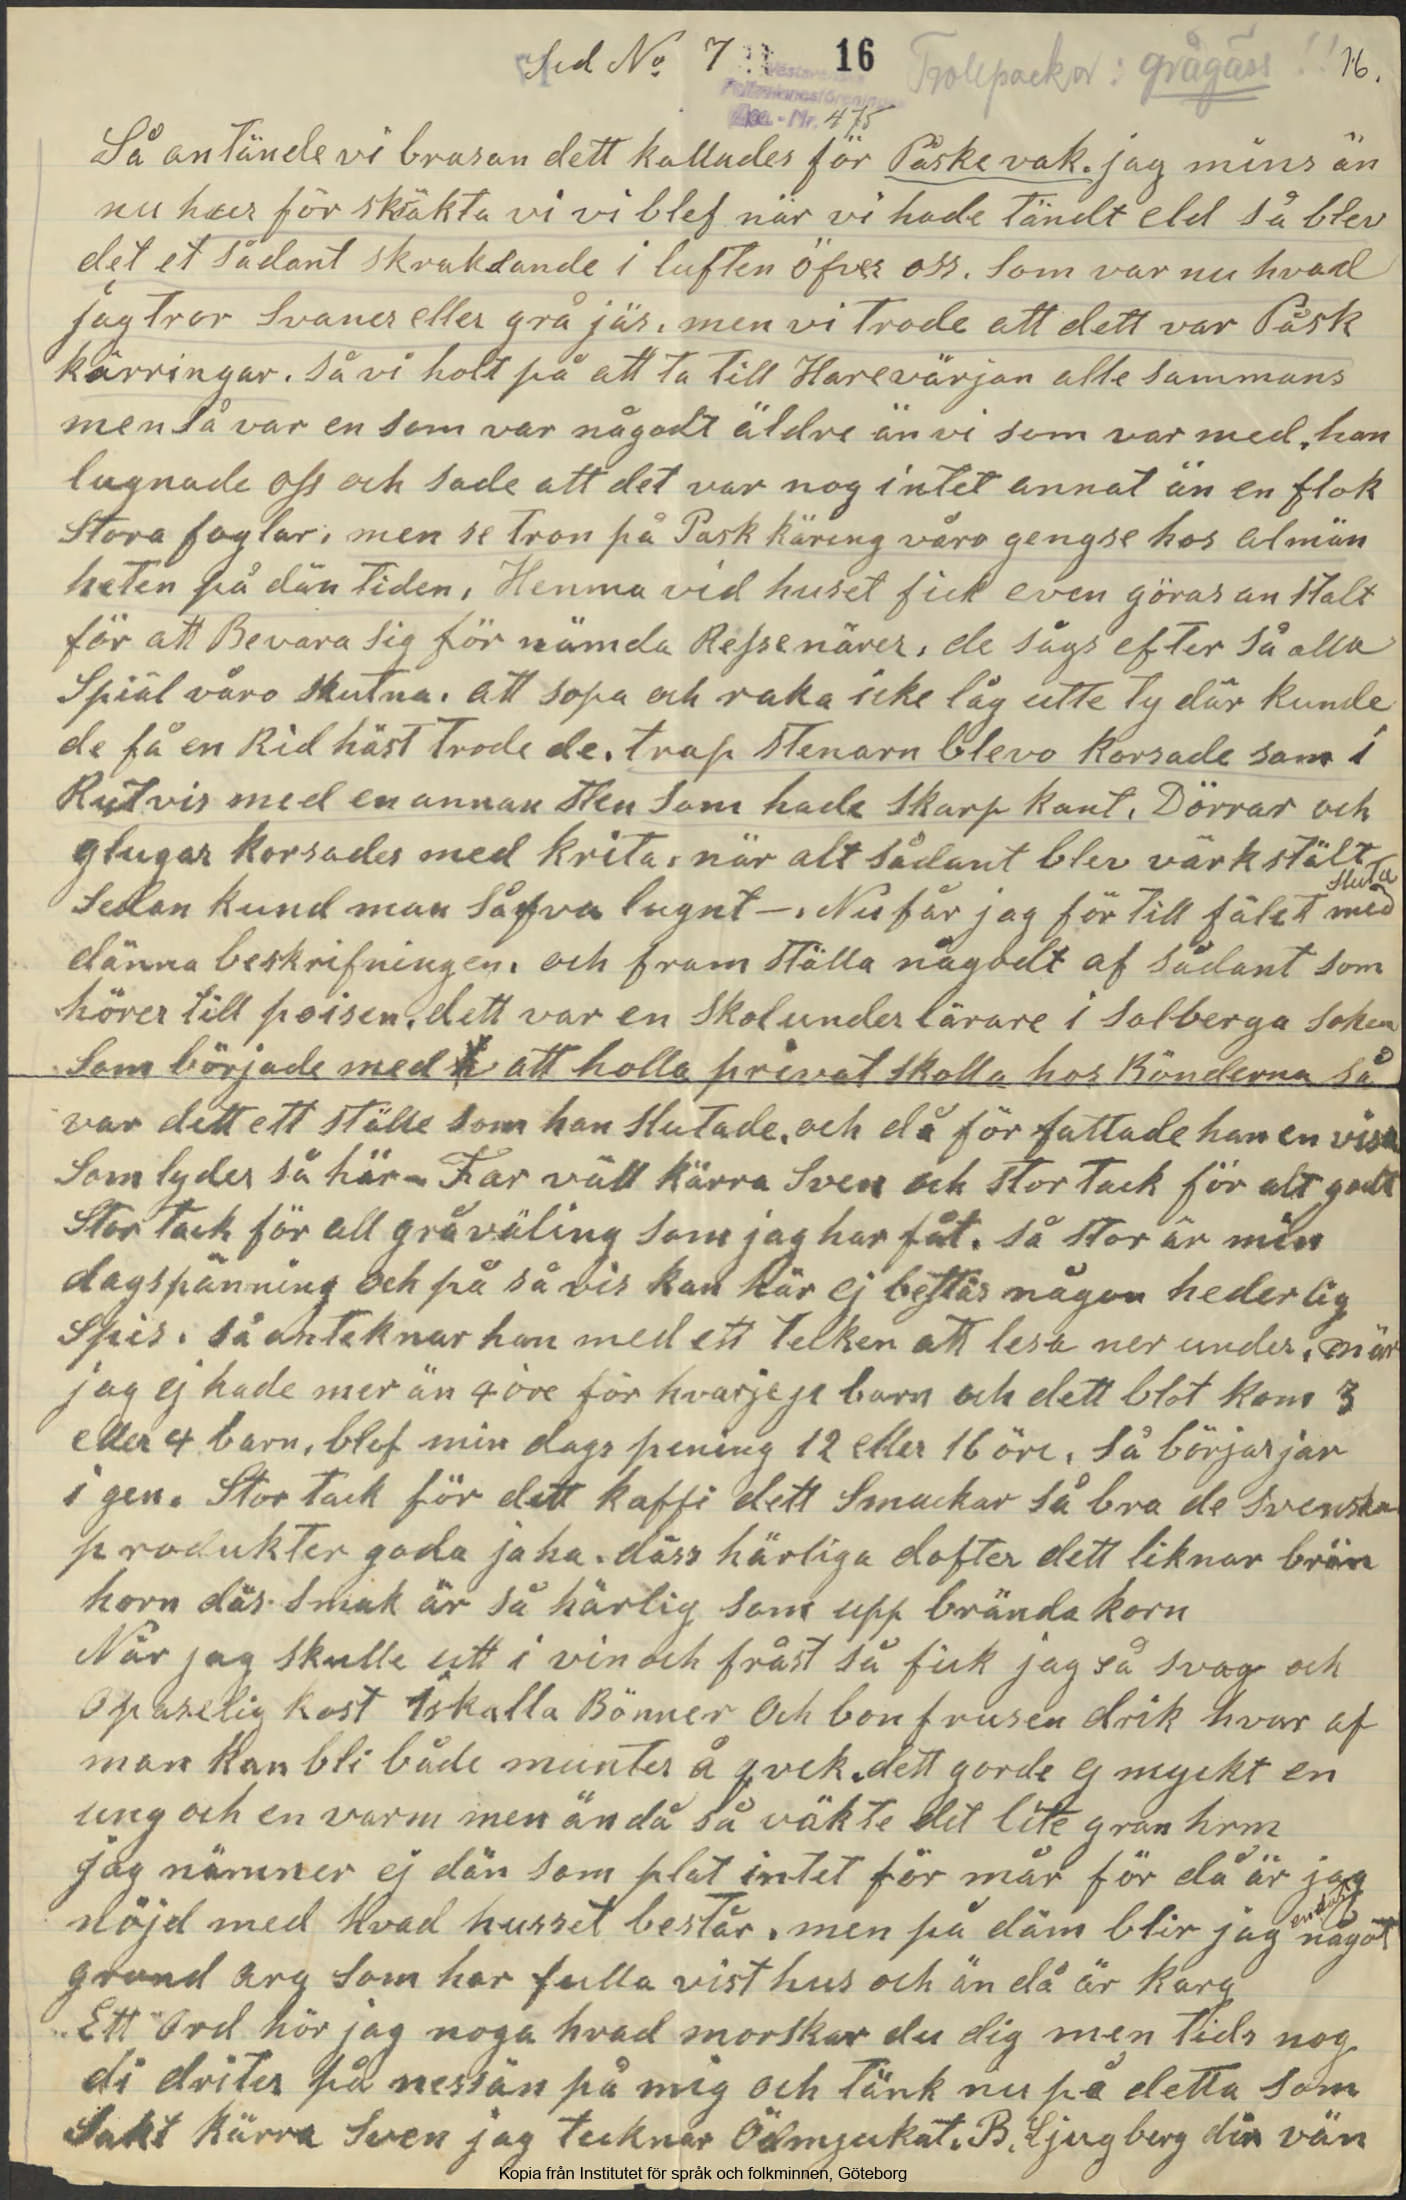 Sid No. 7 16 Trollpackor: grågäss!! 16.
Västsvenska
Folkminnesföreningen
Acc.-Nr. 475
Så antände vi brasan dett kallades för Påskevak. jag mins än
nu hur för skräkta vi vi blef när vi hade tändt eld så blev
det et sådant skraklande i luften Öfver oss. Som var nu hvad
jag tror Svaner eller grå jäs. men vi trode att dett var Påsk
kärringar. så vi holt på att ta till Harevärjan alle sammans
men så var en som var någodt äldre än vi som var med. han
lugnade oss och sade att det var nog intet annat än en flok
Stora foglar. men se tron på Pask käring våro gengse hos almän
heten på dän tiden. Hemma vid huset fick even göras an stalt
för att Bevara sig för nämda Ressenärer. de sågs efter så alla
Spiäl våro skutna. att sopa och raka icke låg utte ty där kunde
de få en Rid häst trode de. trap stenarn blevo korsade som i
Rutvis med en annan sten som hade skarp kant. Dörrar och
glugar korsades med krita. när alt sådant blev värkstält
Sedan kund man såfva lugnt —. Nu får jag för till fälet sluta med
dänna beskrifningen. och fram ställa någodt af sådant som
hörer till poisen. dett var en Skolunder lärare i Solberga Soken
Som började med att holla privat skolla hos Bönderna så
var dett ett ställe som han slutade. och då för fattade han en visa
Som lyder så här – Far väll kärra Sven och stor tack för alt godt
Stor tack för all gråväling som jag har fåt. så stor är min
dagspänning och på så vis kan här ej bestås någon hederlig
Spis. så anteknar han med ett tecken att lesa ner under. när
jag ej hade mer än 4 öre för hvarje barn och dett blot kom 3
eller 4 barn. blef min dags pening 12 eller 16 öre. Så börjas jar
i gen. Stor tack för dett kaffi dett Smackar så bra de Svenska
produkter goda jaha. däss härliga dofter dett liknar brän
horn däs smak är så härlig som upp brända korn
När jag skulle utt i vin och fråst så fick jag så svag och
opaselig kost iskalla Bönner Och bon frusen drik hvar af
man kan bli både munter å qvek. dett gorde ej myckt en
ung och en varm men ändå så väkte det lite gran hrm
jag nämner ej dän som plat intet för mår för då är jag
nöjd med hvad husset består. men på däm blir jag endast något
grund arg som har fulla vist hus och än då är karg
Ett Ord hör jag noga hvad morskar du dig men tids nog
di driter på nessän på mig och tänk nu på detta som
Sakt kärra Sven jag tecknar Ödmjukat. B. Ljugberg din vän
Kopia från Institutet för språk och folkminnen, Göteborg